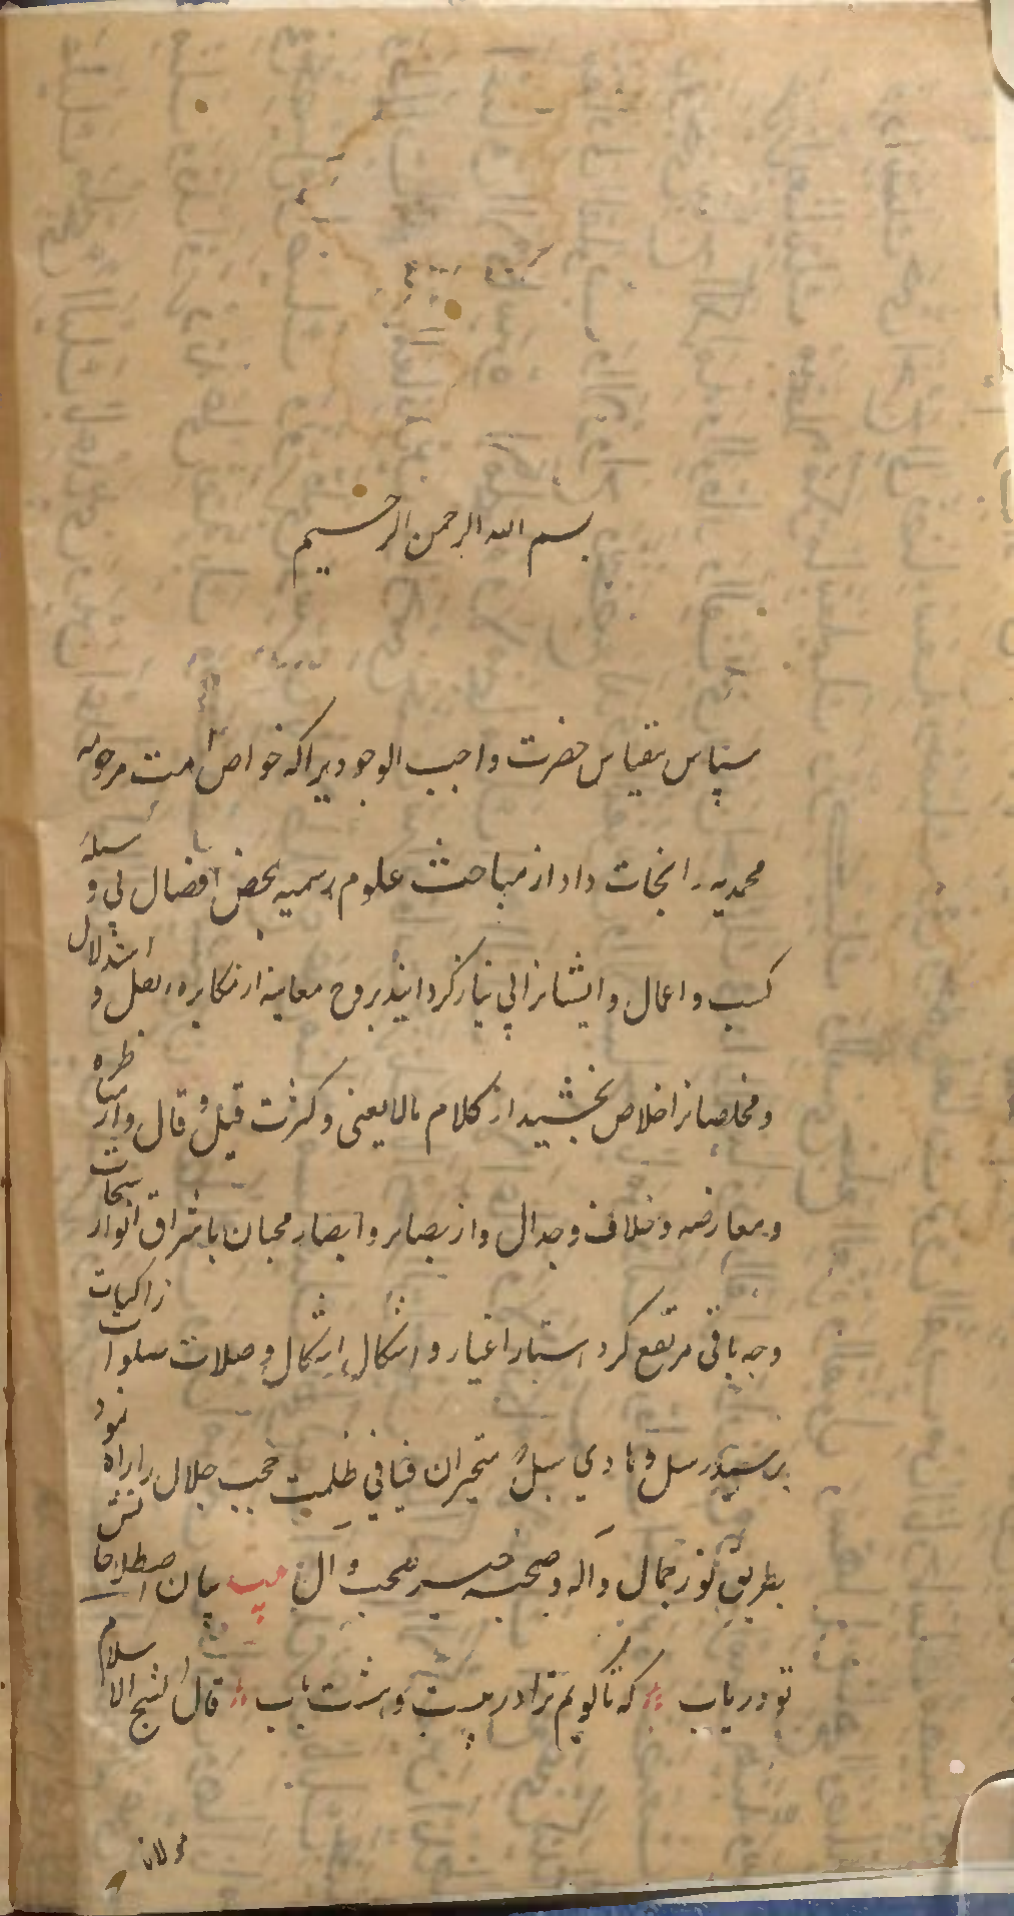 بسم الله الرحمن الرحیم
سپاس بیقیاس حضرت واجب الوجودیرا که خواص امت مرحومه
محمدیه را نجات داد از مباحث علوم رسمیه بمحض افضال بی وسیله
کسب و اعمال و ایشانرا بی نیاز کردانید بروح معاینه از مکابره نقل و استدلال
و مخلصانرا خلاص بخشید از کلام مالا یعنی و کثرت قیل و قال و از مناظره
و معارضه و خلاف و جدال و از بصایر و ابصار محبان باشراق انوار سبحات
وجه باقی مرتفع کرد استار اغیار و اشکال اشکال و صلات صلوات زاکیات
بر سید رسل و هادی سبل متحیران فیافی ظلمت حجب جلال را راه نمود
بطریق نور جمال و آله و صحبه خیر صحب و آل بیان اصطلاحاتش
تو دریاب که تا کویم ترا در بیست و هشت باب قال الشیخ الاسلام
مولانا